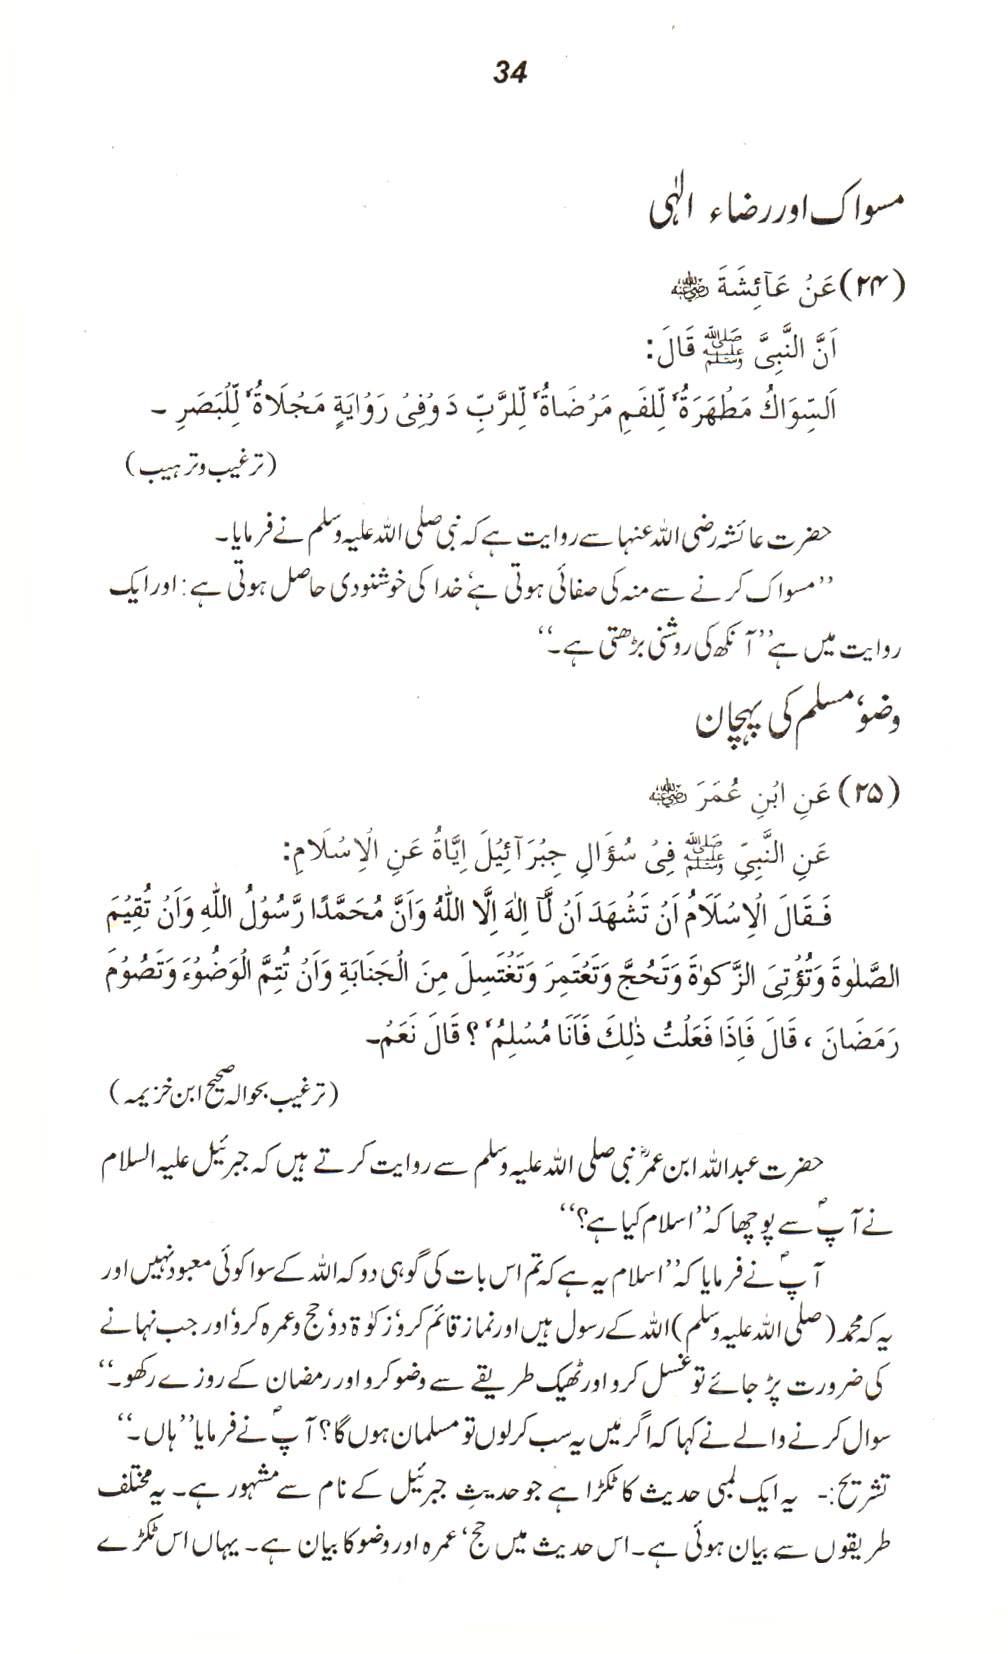 34
مسواک اور رضاء الٰہی
(۲۴) عَنْ عَآئِشَةَ رضی اللہ عنہ
اَنَّ النَّبِیَّ ﷺ قَالَ:
اَلسِّوَاكُ مَطْهَرَةٌ لِّلفَمِ مَرْضَاةٌ لِّلرَّبِّ دَوَفِیْ رَوْایَةٍ مَجْلَاةٌ لِّلْبَصَرِ ۔
(ترغیب و ترہیب)
حضرت عائشہ رضی اللہ عنہا سے روایت ہے کہ نبی صلی اللہ علیہ وسلم نے فرمایا۔
’’مسواک کرنے سے منہ کی صفائی ہوتی ہے‘ خدا کی خوشنودی حاصل ہوتی ہے: اور ایک
روایت میں ہے’’آنکھ کی روشنی بڑھتی ہے۔‘‘
وضو‘ مسلم کی پہچان
(۲۵) عَنِ ابْنِ عُمَرَ رضی اللہ عنہ
عَنِ النَّبِیِّ ﷺ فِیْ سُؤَالِ جِبْرَآئِیْلَ اِیَّاهُ عَنِ الْاِسْلَامِ:
فَقَالَ الْاِسْلَامُ اَنْ تَشْهَدَ اَنْ لَّآ اِلٰهَ اِلَّا اللّٰهُ وَاَنَّ مُحَمَّدًا رَّسُوْلُ اللّٰهِ وَاَنْ تُقِیْمَ
الصَّلٰوةَ وَتُؤْتِیَ الزَّكٰوةَ وَتَحُجَّ وَتَعْتَمِرَ وَتَغْتَسِلَ مِنَ الْجَنَابَةِ وَاَنْ تُتِمَّ الْوَضُوْءَ وَتَصُوْمَ
رَمَضَانَ ، قَالَ فَاِذَا فَعَلْتُ ذٰلِكَ فَاَنَا مُسْلِمٌ ؟ قَالَ نَعَمْ۔
(ترغیب بحوالہ صحیح ابن خزیمہ)
حضرت عبداللہ ابن عمرؓ نبی صلی اللہ علیہ وسلم سے روایت کرتے ہیں کہ جبرئیل علیہ السلام
نے آپؐ سے پوچھا کہ ’’اسلام کیا ہے؟‘‘
آپؐ نے فرمایا کہ ’’اسلام یہ ہے کہ تم اس بات کی گوہی دو کہ اللہ کے سوا کوئی معبود نہیں اور
یہ کہ محمد (صلی اللہ علیہ وسلم) اللہ کے رسول ہیں اور نماز قائم کرو‘ زکوٰۃ دو‘ حج و عمرہ کرو‘ اور جب نہانے
کی ضرورت پڑ جائے تو غسل کرو اور ٹھیک طریقے سے وضو کرو اور رمضان کے روزے رکھو۔‘‘
سوال کرنے والے نے کہا کہ اگر میں یہ سب کرلوں تو مسلمان ہوں گا؟ آپؐ نے فرمایا ’’ہاں۔‘‘
تشریح:- یہ ایک لمبی حدیث کا ٹکڑا ہے جو حدیثِ جبرئیل کے نام سے مشہور ہے۔ یہ مختلف
طریقوں سے بیان ہوئی ہے۔ اس حدیث میں حج‘ عمرہ اور وضو کا بیان ہے۔ یہاں اس ٹکڑے